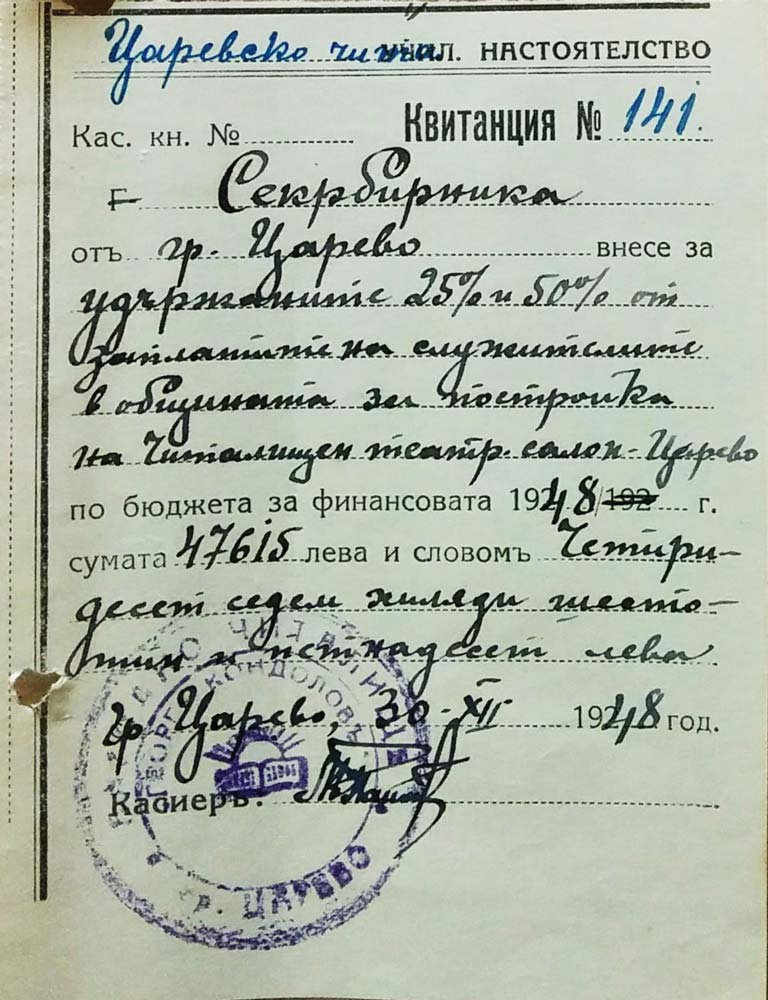 Царевско чит. УЧИЛ. НАСТОЯТЕЛСТВО
Квитанция № 141.
Кас. кн. №
Г. Секрбирника
отъ гр. Царево внесе за
удържаните 25% и 50% от
заплатите на служителите
в общината за постройка
на Читалищен театр. салон - Царево
по бюджета за финансовата 1948/192 г.
сумата 47615 лева и словомъ Четири-
десет седем хиляди шесто-
тин и петнадесет лева
гр. Царево, 30-XII 1948 год.
Касиеръ:
НАРОДНО ЧИТАЛИЩЕ
ГЕОРГИ КОНДОЛОВЪ
гр. ЦАРЕВО